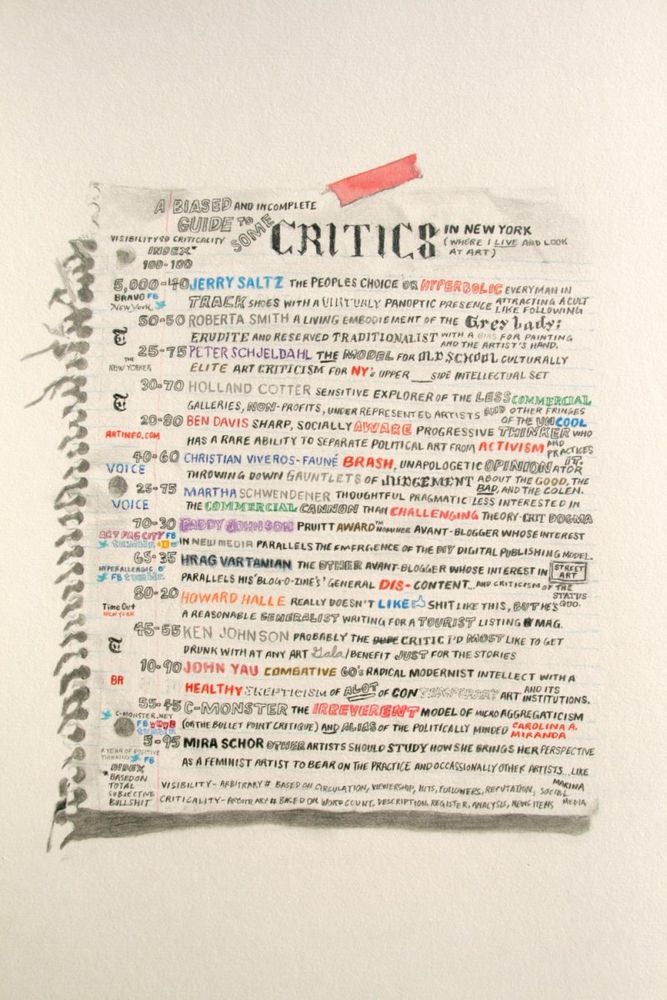 A BIASED AND INCOMPLETE
GUIDE TO SOME CRITICS IN NEW YORK
(WHERE I LIVE AND LOOK AT ART)
VISIBILITY TO CRITICALITY
INDEX*
100-100
5,000-40 JERRY SALTZ THE PEOPLES CHOICE OR HYPERBOLIC EVERYMAN IN
BRAVO FB
NEW YORK
TRACK SHOES WITH A VIRTUALLY PANOPTIC PRESENCE ATTRACTING A CULT LIKE FOLLOWING
50-50 ROBERTA SMITH A LIVING EMBODIEMENT OF THE Grey Lady:
ERUDITE AND RESERVED TRADITIONALIST WITH A BIAS FOR PAINTING AND THE ARTIST'S HAND.
25-75 PETER SCHJELDAHL THE MODEL FOR OLD SCHOOL CULTURALLY
THE NEW YORKER
ELITE ART CRITICISM FOR NY'S UPPER ___SIDE INTELLECTUAL SET
30-70 HOLLAND COTTER SENSITIVE EXPLORER OF THE LESS COMMERCIAL
GALLERIES, NON-PROFITS, UNDER REPRESENTED ARTISTS AND OTHER FRINGES OF THE UNCOOL
20-80 BEN DAVIS SHARP, SOCIALLY AWARE PROGRESSIVE THINKER WHO
ARTINFO.COM
HAS A RARE ABILITY TO SEPARATE POLITICAL ART FROM ACTIVISM AND PRACTICES IT.
40-60 CHRISTIAN VIVEROS-FAUNÉ BRASH, UNAPOLOGETIC OPINIONATOR
VOICE
THROWING DOWN GAUNTLETS OF JUDGEMENT ABOUT THE GOOD, THE BAD, AND THE COLEN.
25-75 MARTHA SCHWENDENER THOUGHTFUL PRAGMATIC LESS INTERESTED IN
VOICE
THE COMMERCIAL CANNON THAN CHALLENGING THEORY-CRIT DOGMA
70-30 PADDY JOHNSON PRUITT AWARD™ NOMINEE AVANT-BLOGGER WHOSE INTEREST
ART FAG CITY FB
tumblr.
IN NEW MEDIA PARALLELS THE EMERGENCE OF THE DIY DIGITAL PUBLISHING MODEL.
65-35 HRAG VARTANIAN THE OTHER AVANT-BLOGGER WHOSE INTEREST IN STREET ART
HYPERALLERGIC
FB tumblr.
PARALLELS HIS 'BLOG-O-ZINE'S' GENERAL DIS-CONTENT...AND CRITICISM OF THE STATUS QUO.
80-20 HOWARD HALLE REALLY DOESN'T LIKE SHIT LIKE THIS, BUT HE'S
Time Out
NEW YORK
A REASONABLE GENERALIST WRITING FOR A TOURIST LISTING MAG.
45-55 KEN JOHNSON PROBABLY THE CRITIC I'D MOST LIKE TO GET
DRUNK WITH AT ANY ART Gala/BENEFIT JUST FOR THE STORIES
10-90 JOHN YAU COMBATIVE 60'S RADICAL MODERNIST INTELLECT WITH A
BR
HEALTHY SKEPTICISM OF ALOT OF CONTEMPORARY ART AND ITS INSTITUTIONS.
55-45 C-MONSTER THE IRREVERENT MODEL OF MICRO AGGREGATICISM
C-MONSTER.NET
(OR THE BULLET POINT CRITIQUE) AND ALIAS OF THE POLITICALLY MINDED CAROLINA A. MIRANDA
5-95 MIRA SCHOR OTHER ARTISTS SHOULD STUDY HOW SHE BRINGS HER PERSPECTIVE
A YEAR OF POSITIVE THINKING FB
AS A FEMINIST ARTIST TO BEAR ON THE PRACTICE AND OCCASSIONALLY OTHER ARTISTS...LIKE MARINA
*INDEX
BASED ON
TOTAL
SUBJECTIVE
BULLSHIT
VISIBILITY-ARBITRARY # BASED ON CIRCULATION, VIEWERSHIP, HITS, FOLLOWERS, REPUTATION, SOCIAL MEDIA
CRITICALITY-ARBITRARY # BASED ON WORD COUNT, DESCRIPTION, REGISTER, ANALYSIS, NEWS ITEMS